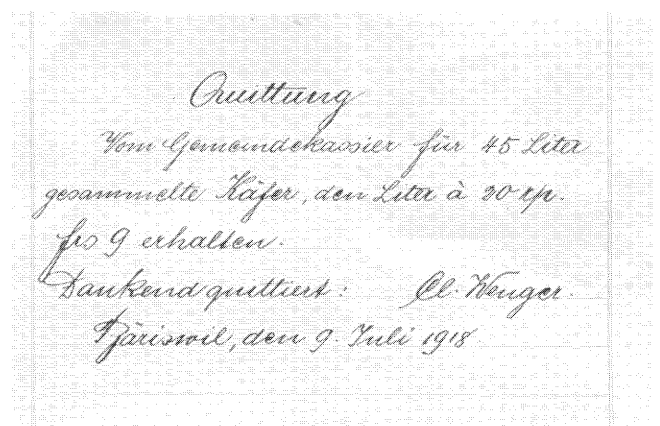 Quittung
Vom Gemeindekassier für 45 Liter
gesammelte Käfer, den Liter à 20 rp.
frs 9 erhalten.
Dankend quittiert: Cl. Wenger.
Bäriswil, den 9. Juli 1918